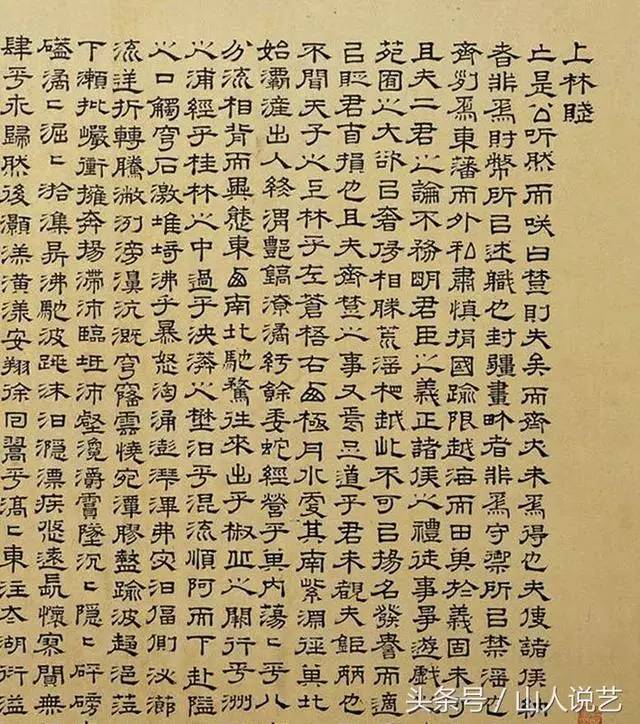 上林賦
亡是公听然而咲曰楚則失矣而齊亦未爲得也夫使諸侯納
者非爲財幣所以述職也封疆畫界者非爲守禦所以禁淫也
齊列爲東藩而外私肅慎捐國踰限越海而田其於義固未
且夫二君之論不務明君臣之義正諸侯之禮徒事爭遊戲
苑囿之大欲以奢侈相勝荒淫相越此不可以揚名發譽而適
以貶君自損也且夫齊楚之事又焉足道乎君未覩夫鉅麗也
不聞天子之上林乎左蒼梧右西極丹水更其南紫淵徑其北
始灞滻出入涇渭酆鎬潦潏紆餘委蛇經營乎其內蕩〻乎八
分流相背而異態東西南北馳騖往來出乎椒丘之闕行乎洲
之浦經乎桂林之中過乎泱漭之壄汩乎混流順阿而下赴隘
之口觸穹石激堆埼沸乎暴怒洶涌澎湃滭弗宓汩偪側泌瀄
流逆折轉騰潎洌滂濞沆溉穹窿雲橈宛潬膠盭踰波趨浥莅
下瀨批巖衝擁奔揚滯沛臨坻沛壑瀺灂霣墜沉〻隱〻砰磅
磕潏〻淈〻湁潗鼎沸馳波跳沫汩漂疾悠遠長懷寂無
肆乎永歸然後灝溔潢漾安翔徐回翯乎滈〻東注太湖衍溢
头条号/山人说艺